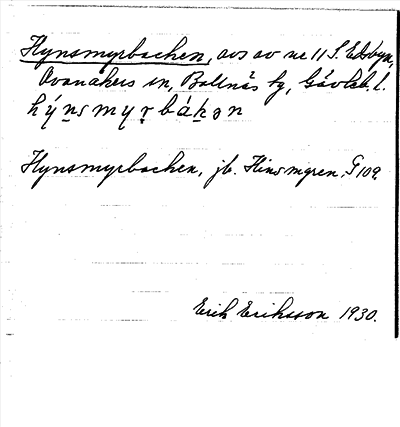 Hynsmyrbacken, avs av nr 11 S. Edsbyn,
Ovanåkers sn, Bollnäs tg, Gävleb. l.
hýn̥smyr̥bák̥ən
Hynsmyrbacken, jb. Hinsmyren. G 109.
Erik Eriksson 1930.